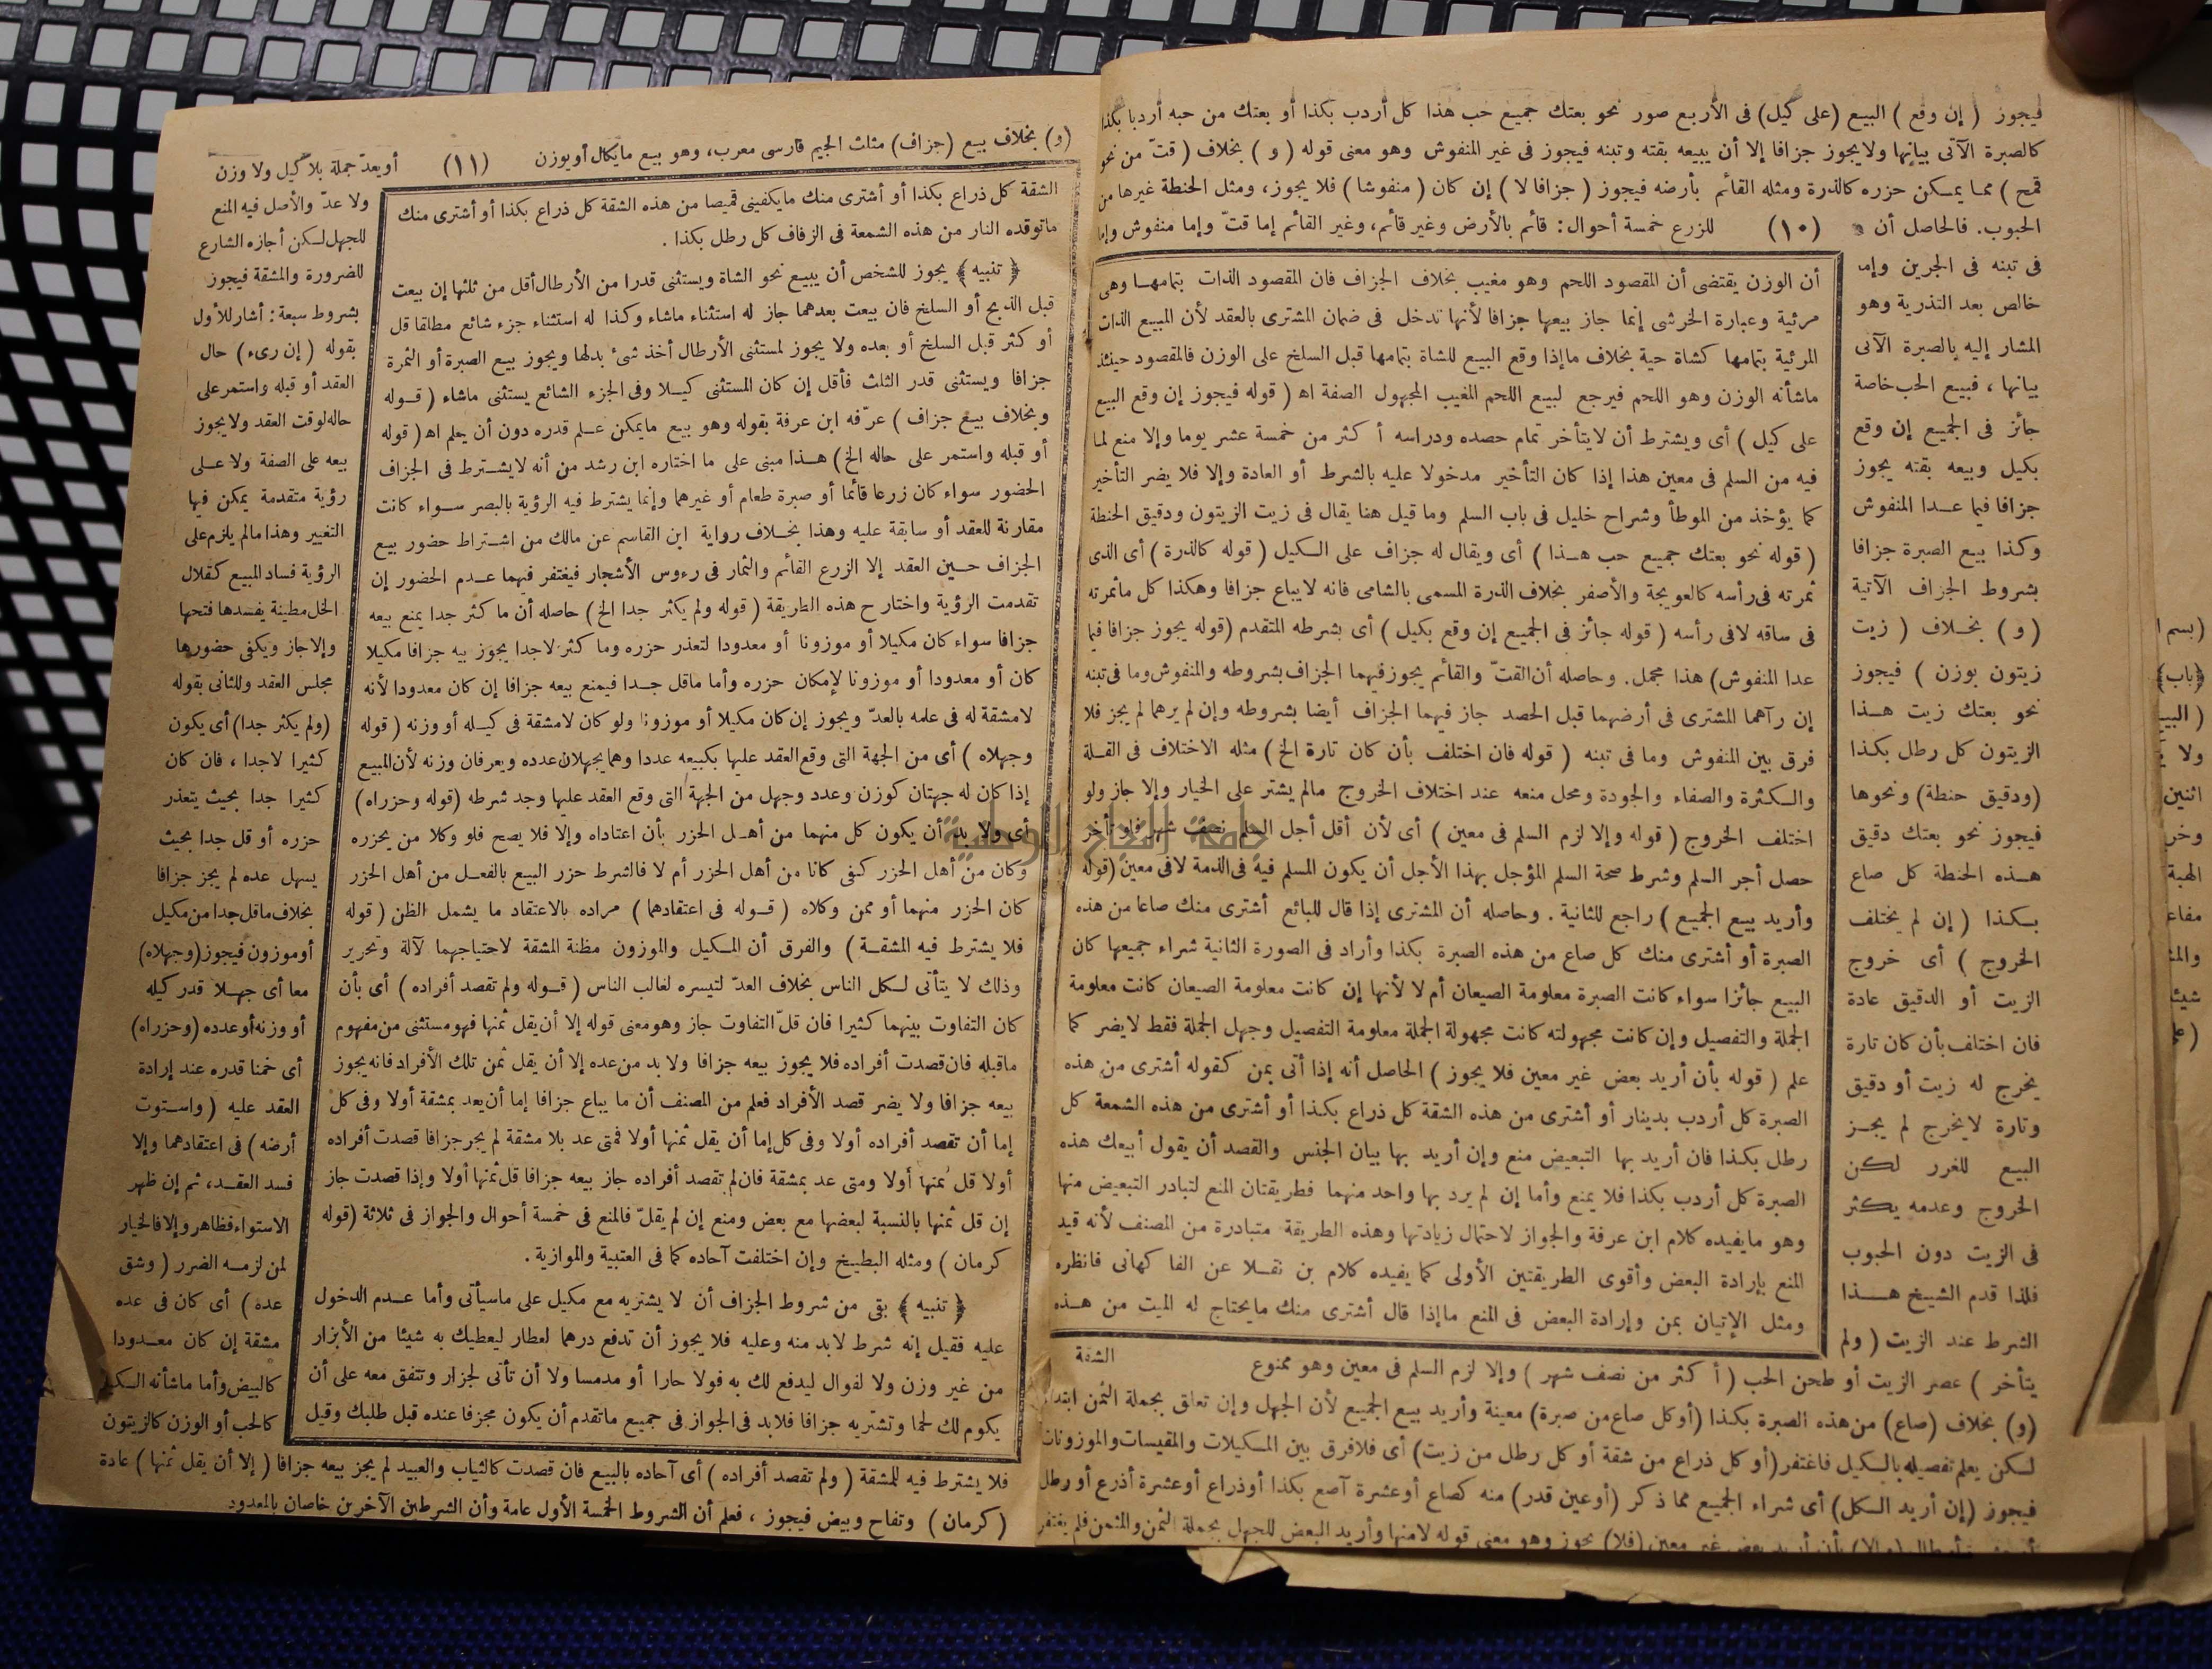 فيجوز ( إن وقع ) البيع (على كيل) فى الأربع صور نحو بعتك جميع حب هذا كل أردب بكذا أو بعتك من حبه أردبا بكذا
كالصبرة الآتى بيانها ولايجوز جزافا إلا أن يبيعه بقته وتبنه فيجوز فى غير المنفوش وهو معنى قوله ( و ) بخلاف ( قتّ من نحو
قمح ) مما يمكن حزره كالذرة ومثله القائم بأرضه فيجوز ( جزافا لا ) إن كان ( منفوشا ) فلا يجوز، ومثل الحنطة غيرها من
الحبوب. فالحاصل أن (١٠) للزرع خمسة أحوال: قائم بالأرض وغير قائم، وغير القائم إما قتّ وإما منفوش وإما
فى تبنه فى الجرين وإما
خالص بعد التذرية وهو
المشار إليه بالصبرة الآتى
بيانها ، فبيع الحب خاصة
جائز فى الجميع إن وقع
بكيل وبيعه بقته يجوز
جزافا فيما عدا المنفوش
وكذا بيع الصبرة جزافا
بشروط الجزاف الآتية
( و ) بخلاف ( زيت
زيتون بوزن ) فيجوز
نحو بعتك زيت هذا
الزيتون كل رطل بكذا
(ودقيق حنطة) ونحوها
فيجوز نحو بعتك دقيق
هذه الحنطة كل صاع
بكذا ( إن لم يختلف
الخروج ) أى خروج
الزيت أو الدقيق عادة
فان اختلف بأن كان تارة
يخرج له زيت أو دقيق
وتارة لايخرج لم يجز
البيع للغرر لكن
الخروج وعدمه يكثر
فى الزيت دون الحبوب
فلذا قدم الشيخ هذا
الشرط عند الزيت ( ولم
أن الوزن يقتضى أن المقصود اللحم وهو مغيب بخلاف الجزاف فان المقصود الذات بتمامها وهى
مرئية وعبارة الخرشى إنما جاز بيعها جزافا لأنها تدخل فى ضمان المشترى بالعقد لأن المبيع الذات
المرئية بتمامها كشاة حية بخلاف ماإذا وقع البيع للشاة بتمامها قبل السلخ على الوزن فالمقصود حينئذ
ماشأنه الوزن وهو اللحم فيرجع لبيع اللحم المغيب المجهول الصفة اه ( قوله فيجوز إن وقع البيع
على كيل ) أى ويشترط أن لايتأخر تمام حصده ودراسه أكثر من خمسة عشر يوما وإلا منع لما
فيه من السلم فى معين هذا إذا كان التأخير مدخولا عليه بالشرط أو العادة وإلا فلا يضر التأخير
كما يؤخذ من الموطأ وشراح خليل فى باب السلم وما قيل هنا يقال فى زيت الزيتون ودقيق الحنطة
( قوله نحو بعتك جميع حب هذا ) أى ويقال له جزاف على الكيل ( قوله كالذرة ) أى الذى
ثمرته فى رأسه كالعويجة والأصفر بخلاف الذرة المسمى بالشامى فانه لايباع جزافا وهكذا كل ماثمرته
فى ساقه لافى رأسه ( قوله جائز فى الجميع إن وقع بكيل ) أى بشرطه المتقدم (قوله يجوز جزافا فيما
عدا المنفوش) هذا مجمل. وحاصله أن القتّ والقائم يجوز فيهما الجزاف بشروطه والمنفوش وما فى تبنه
إن رآهما المشترى فى أرضهما قبل الحصد جاز فيهما الجزاف أيضا بشروطه وإن لم يرهما لم يجز فلا
فرق بين المنفوش وما فى تبنه ( قوله فان اختلف بأن كان تارة الخ ) مثله الاختلاف فى القلة
والكثرة والصفاء والجودة ومحل منعه عند اختلاف الخروج مالم يشتر على الخيار وإلا جاز ولو
اختلف الخروج ( قوله وإلا لزم السلم فى معين ) أى لأن أقل أجل السلم نصف شهر فلو تأخر
حصل أجر السلم وشرط صحة السلم المؤجل بهذا الأجل أن يكون المسلم فيه فى الذمة لافى معين (قوله
وأريد بيع الجميع ) راجع للثانية . وحاصله أن المشترى إذا قال للبائع أشترى منك صاعا من هذه
الصبرة أو أشترى منك كل صاع من هذه الصبرة بكذا وأراد فى الصورة الثانية شراء جميعها كان
البيع جائزا سواء كانت الصبرة معلومة الصيعان أم لا لأنها إن كانت معلومة الصيعان كانت معلومة
الجملة والتفصيل وإن كانت مجهولته كانت مجهولة الجملة معلومة التفصيل وجهل الجملة فقط لايضر كما
علم ( قوله بأن أريد بعض غير معين فلا يجوز ) الحاصل أنه إذا أتى بمن كقوله أشترى من هذه
الصبرة كل أردب بدينار أو أشترى من هذه الشقة كل ذراع بكذا أو أشترى من هذه الشمعة كل
رطل بكذا فان أريد بها التبعيض منع وإن أريد بها بيان الجنس والقصد أن يقول أبيعك هذه
الصبرة كل أردب بكذا فلا يمنع وأما إن لم يرد بها واحد منهما فطريقتان المنع لتبادر التبعيض منها
وهو مايفيده كلام ابن عرفة والجواز لاحتمال زيادتها وهذه الطريقة متبادرة من المصنف لأنه قيد
المنع بإرادة البعض وأقوى الطريقتين الأولى كما يفيده كلام بن نقلا عن الفاكهانى فانظره
ومثل الإتيان بمن وإرادة البعض فى المنع ماإذا قال أشترى منك مايحتاج له الميت من هذه
الشقة
يتأخر ) عصر الزيت أو طحن الحب ( أكثر من نصف شهر ) وإلا لزم السلم فى معين وهو ممنوع
(و) بخلاف (صاع) من هذه الصبرة بكذا (أو كل صاع من صبرة) معينة وأريد بيع الجميع لأن الجهل وإن تعلق بجملة الثمن ابتداء
لكن يعلم تفصيله بالكيل فاغتفر (أو كل ذراع من شقة أو كل رطل من زيت) أى فلافرق بين المكيلات والمقيسات والموزونات
فيجوز (إن أريد الكل) أى شراء الجميع مما ذكر (أو عين قدر) منه كصاع أو عشرة آصع بكذا أو ذراع أو عشرة أذرع أو رطل
(و) بخلاف بيع (جزاف) مثلث الجيم فارسى معرب، وهو بيع مايكال أو يوزن (١١) أو يعدّ جملة بلا كيل ولا وزن
ولا عدّ والأصل فيه المنع
للجهل لكن أجازه الشارع
للضرورة والمشقة فيجوز
بشروط سبعة: أشار للأول
بقوله ( إن رىء ) حال
العقد أو قبله واستمر على
حاله لوقت العقد ولايجوز
بيعه على الصفة ولا على
رؤية متقدمة يمكن فيها
التغيير وهذا مالم يلزم على
الرؤية فساد المبيع كقلال
الخل مطينة يفسدها فتحها
وإلا جاز ويكفى حضورها
مجلس العقد وللثانى بقوله
(ولم يكثر جدا) أى يكون
كثيرا لاجدا ، فان كان
كثيرا جدا بحيث يتعذر
حزره أو قل جدا بحيث
يسهل عده لم يجز جزافا
بخلاف ماقل جدا من مكيل
أو موزون فيجوز (وجهلاه)
معا أى جهلا قدر كيله
أو وزنه أو عدده (وحزراه)
أى خمنا قدره عند إرادة
العقد عليه ( واستوت
أرضه ) فى اعتقادهما وإلا
فسد العقد، ثم إن ظهر
الاستواء فظاهر وإلا فالخيار
لمن لزمه الضرر ( وشق
عده ) أى كان فى عده
مشقة إن كان معدودا
كالبيض وأما ماشأنه الكيل
كالحب أو الوزن كالزيتون
الشقة كل ذراع بكذا أو أشترى منك مايكفينى قميصا من هذه الشقة كل ذراع بكذا أو أشترى منك
ماتوقده النار من هذه الشمعة فى الزفاف كل رطل بكذا .
﴿ تنبيه ﴾ يجوز للشخص أن يبيع نحو الشاة ويستثنى قدرا من الأرطال أقل من ثلثها إن بيعت
قبل الذبح أو السلخ فان بيعت بعدهما جاز له استثناء ماشاء وكذا له استثناء جزء شائع مطلقا قل
أو كثر قبل السلخ أو بعده ولا يجوز لمستثنى الأرطال أخذ شىء بدلها ويجوز بيع الصبرة أو الثمرة
جزافا ويستثنى قدر الثلث فأقل إن كان المستثنى كيلا وفى الجزء الشائع يستثنى ماشاء ( قوله
وبخلاف بيع جزاف ) عرّفه ابن عرفة بقوله وهو بيع مايمكن علم قدره دون أن يعلم اه ( قوله
أو قبله واستمر على حاله الخ ) هذا مبنى على ما اختاره ابن رشد من أنه لايشترط فى الجزاف
الحضور سواء كان زرعا قائما أو صبرة طعام أو غيرهما وإنما يشترط فيه الرؤية بالبصر سواء كانت
مقارنة للعقد أو سابقة عليه وهذا بخلاف رواية ابن القاسم عن مالك من اشتراط حضور بيع
الجزاف حين العقد إلا الزرع القائم والثمار فى رءوس الأشجار فيغتفر فيهما عدم الحضور إن
تقدمت الرؤية واختار ح هذه الطريقة ( قوله ولم يكثر جدا الخ ) حاصله أن ما كثر جدا يمنع بيعه
جزافا سواء كان مكيلا أو موزونا أو معدودا لتعذر حزره وما كثر لاجدا يجوز بيعه جزافا مكيلا
كان أو معدودا أو موزونا لإمكان حزره وأما ماقل جدا فيمنع بيعه جزافا إن كان معدودا لأنه
لامشقة له فى علمه بالعدّ ويجوز إن كان مكيلا أو موزونا ولو كان لامشقة فى كيله أو وزنه ( قوله
وجهلاه ) أى من الجهة التى وقع العقد عليها بكبيعه عددا وهما يجهلان عدده ويعرفان وزنه لأن المبيع
إذا كان له جهتان كوزن وعدد وجهل من الجهة التى وقع العقد عليها وجد شرطه (قوله وحزراه)
أى ولا بد أن يكون كل منهما من أهل الحزر بأن اعتاداه وإلا فلا يصح فلو وكلا من يحزره
وكان من أهل الحزر كفى كانا من أهل الحزر أم لا فالشرط حزر المبيع بالفعل من أهل الحزر
كان الحزر منهما أو ممن وكلاه ( قوله فى اعتقادهما ) مراده بالاعتقاد ما يشمل الظن ( قوله
فلا يشترط فيه المشقة ) والفرق أن المكيل والموزون مظنة المشقة لاحتياجهما لآلة وتحرير
وذلك لا يتأتى لكل الناس بخلاف العدّ لتيسره لغالب الناس ( قوله ولم تقصد أفراده ) أى بأن
كان التفاوت بينهما كثيرا فان قلّ التفاوت جاز وهو معنى قوله إلا أن يقل ثمنها فهو مستثنى من مفهوم
ماقبله فان قصدت أفراده فلا يجوز بيعه جزافا ولا بد من عده إلا أن يقل ثمن تلك الأفراد فانه يجوز
بيعه جزافا ولا يضر قصد الأفراد فعلم من المصنف أن ما يباع جزافا إما أن يعد بمشقة أولا وفى كل
إما أن تقصد أفراده أولا وفى كل إما أن يقل ثمنها أولا فمتى عد بلا مشقة لم يجز جزافا قصدت أفراده
أولا قل ثمنها أولا ومتى عد بمشقة فان لم تقصد أفراده جاز بيعه جزافا قل ثمنها أولا وإذا قصدت جاز
إن قل ثمنها بالنسبة لبعضها مع بعض ومنع إن لم يقلّ فالمنع فى خمسة أحوال والجواز فى ثلاثة (قوله
كرمان ) ومثله البطيخ وإن اختلفت آحاده كما فى العتبية والموازية .
﴿ تنبيه ﴾ بقى من شروط الجزاف أن لا يشتريه مع مكيل على ماسيأتى وأما عدم الدخول
عليه فقيل إنه شرط لابد منه وعليه فلا يجوز أن تدفع درهما لعطار ليعطيك به شيئا من الأبزار
من غير وزن ولا لفوال ليدفع لك به فولا حارا أو مدمسا ولا أن تأتى لجزار وتتفق معه على أن
يكوم لك لحما وتشتريه جزافا فلابد فى الجواز فى جميع ماتقدم أن يكون مجزفا عنده قبل طلبك وقيل
فلا يشترط فيه المشقة ( ولم تقصد أفراده ) أى آحاده بالبيع فان قصدت كالثياب والعبيد لم يجز بيعه جزافا ( إلا أن يقل ثمنها ) عادة
( كرمان ) وتفاح وبيض فيجوز ، فعلم أن الشروط الخمسة الأول عامة وأن الشرطين الآخرين خاصان بالمعدود
جامعة النجاح الوطنية